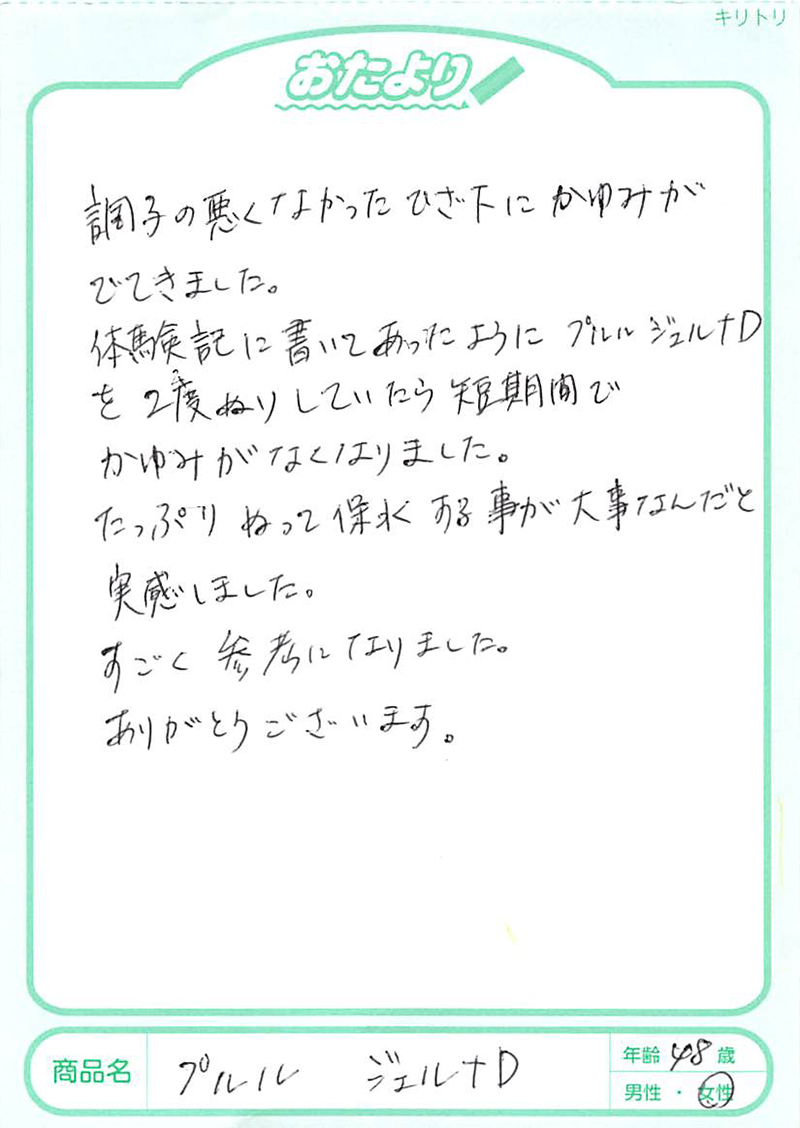 キリトリ
おたより
調子の悪くなかったひざ下にかゆみが
でてきました。
体験記に書いてあったようにプルル ジェルナD
を2度ぬりしていたら短期間で
かゆみがなくなりました。
たっぷりぬって保水する事が大事なんだと
実感しました。
すごく参考になりました。
ありがとうございます。
商品名 プルル ジェルナD
年齢 48 歳
男性・女性